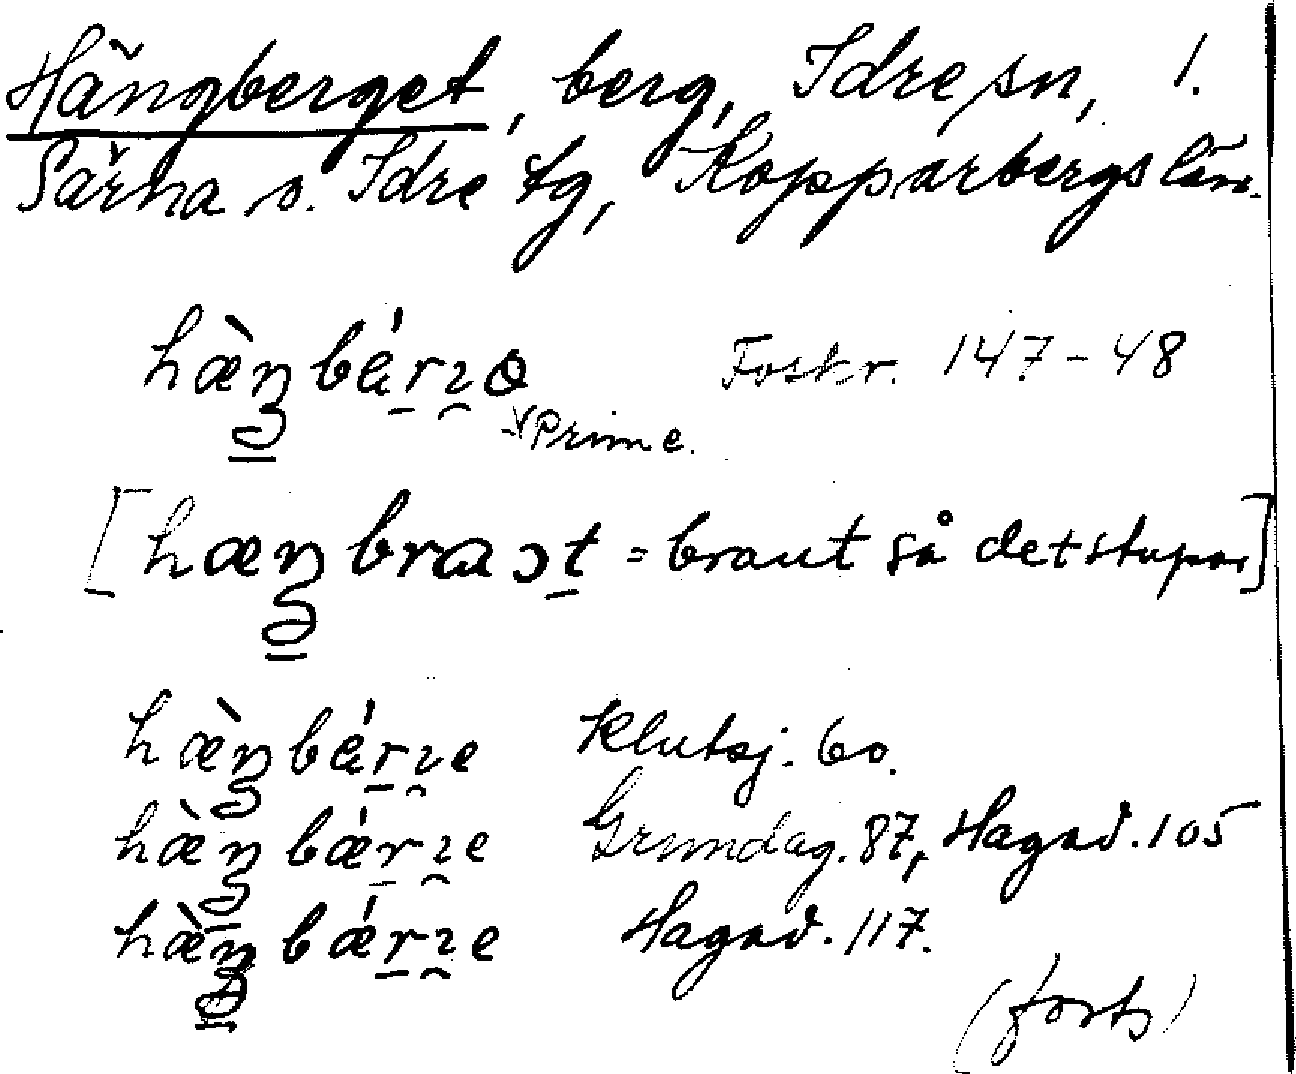 Hängberget, berg, Idre sn, 1.
Särna o. Idre tg, Kopparbergs län.
hæ̀ŋbárɿə Foskr. 147-48
Prim e.
[hæŋbraɔt = braut så det stupar]
hæ̀ŋbárɿe Klutsj. 60.
hæ̀ŋbǽrɿe Grundag. 87, Hagåd. 105
hæ̀ŋbǽrɿe Hagåd. 117.
(forts)